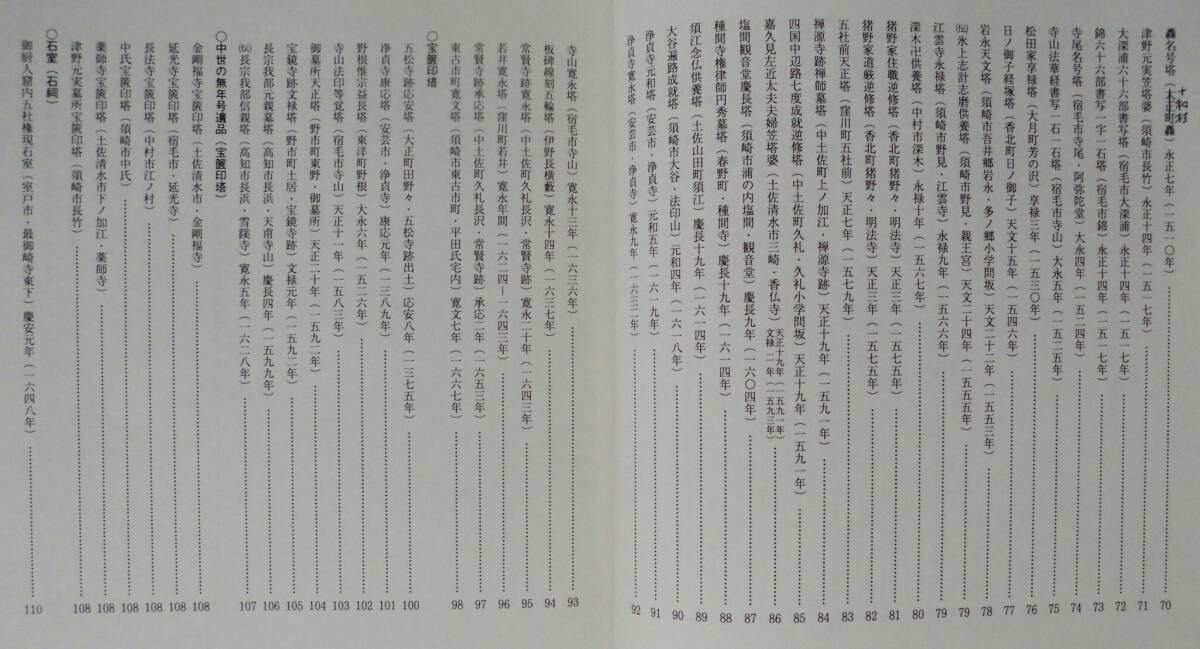 十和村
轟名号塔（大正町轟）永正七年（一五一〇年）……70
津野元実笠塔婆（須崎市長竹）永正十四年（一五一七年）……71
大深浦六十六部書写塔（宿毛市大深浦）永正十四年（一五一七年）……72
錦六十六部書写一字一石塔（宿毛市錦）永正十四年（一五一七年）……73
寺尾名号塔（宿毛市寺尾・阿弥陀堂）大永四年（一五二四年）……74
寺山法華経書写一石一石塔（宿毛市寺山）大永五年（一五二五年）……75
松田家享禄塔（大月町芳の沢）享禄三年（一五三〇年）……76
日ノ御子経塚塔（香北町日ノ御子）天文十五年（一五四六年）……77
岩永天文塔（須崎市吾井郷岩永・多ノ郷小学問坂）天文二十二年（一五五三年）……78
㈶氷上志計志磨供養塔（須崎市野見・親王宮）天文二十四年（一五五五年）……79
江雲寺永禄塔（須崎市野見・江雲寺）永禄九年（一五六六年）……79
深木卍供養塔（中村市深木）永禄十年（一五六七年）……80
猪野家住職逆修塔（香北町猪野々・明法寺）天正三年（一五七五年）……81
猪野家道厳逆修塔（香北町猪野々・明法寺）天正三年（一五七五年）……82
五社前天正塔（窪川町五社前）天正七年（一五七九年）……83
禅源寺跡禅師墓塔（中土佐町上ノ加江・禅源寺跡）天正十九年（一五九一年）……84
四国中辺路七度成就逆修塔（中土佐町久礼・久礼小学問坂）天正十九年（一五九一年）……85
嘉久見左近太夫夫婦笠塔婆（土佐清水市三崎・香仏寺）天正十九年（一五九一年）文禄二年（一五九三年）……86
塩間観音堂慶長塔（須崎市浦の内塩間・観音堂）慶長九年（一六〇四年）……87
種間寺権律師円秀墓塔（春野町・種間寺）慶長十九年（一六一四年）……88
須江念仏供養塔（土佐山田町須江）慶長十九年（一六一四年）……89
大谷遍路成就塔（須崎市大谷・法印山）元和四年（一六一八年）……90
浄貞寺元和塔（安芸市・浄貞寺）元和五年（一六一九年）……91
浄貞寺寛永塔（安芸市・浄貞寺）寛永九年（一六三二年）……92
寺山寛永塔（宿毛市寺山）寛永十三年（一六三六年）……93
板碑線刻五輪塔（伊野長横藪）寛永十四年（一六三七年）……94
常賢寺跡寛永塔（中土佐町久礼長沢・常賢寺跡）寛永二十年（一六四三年）……95
若井寛永塔（窪川町若井）寛永年間（一六二四－一六四三年）……96
常賢寺跡承応塔（中土佐町久礼長沢・常賢寺跡）承応二年（一六五三年）……97
東古市町寛文塔（須崎市東古市町・平田氏宅内）寛文七年（一六六七年）……98
〇宝篋印塔
五松寺跡応安塔（大正町田野々・五松寺跡出土）応安八年（一三七五年）……100
浄貞寺康応塔（安芸市・浄貞寺）康応元年（一三八九年）……101
野根惟宗益長塔（東洋町野根）大永六年（一五二六年）……102
寺山法印等覚塔（宿毛市寺山）天正十一年（一五八三年）……103
御墓所天正塔（野市町東野・御墓所）天正二十年（一五九二年）……104
宝鏡寺跡文禄塔（野市町土居・宝鏡寺跡）文禄元年（一五九二年）……105
長宗我部元親墓塔（高知市長浜・天甫寺山）慶長四年（一五九九年）……106
㈶長宗我部信親塔（高知市長浜・雪蹊寺）寛永五年（一六二八年）……107
〇中世の無年号遺品（宝篋印塔）
金剛福寺宝篋印塔（土佐清水市・金剛福寺）……108
延光寺宝篋印塔（宿毛市・延光寺）……108
長法寺宝篋印塔（中村市江ノ村）……108
中氏宝篋印塔（須崎市中氏）……108
薬師寺宝篋印塔（土佐清水市下ノ加江・薬師寺）……108
津野元実墓所宝篋印塔（須崎市長竹）……108
〇石室（石祠）
御厨人窟内五社権現石室（室戸市・最御崎寺東下）慶安元年（一六四八年）……110